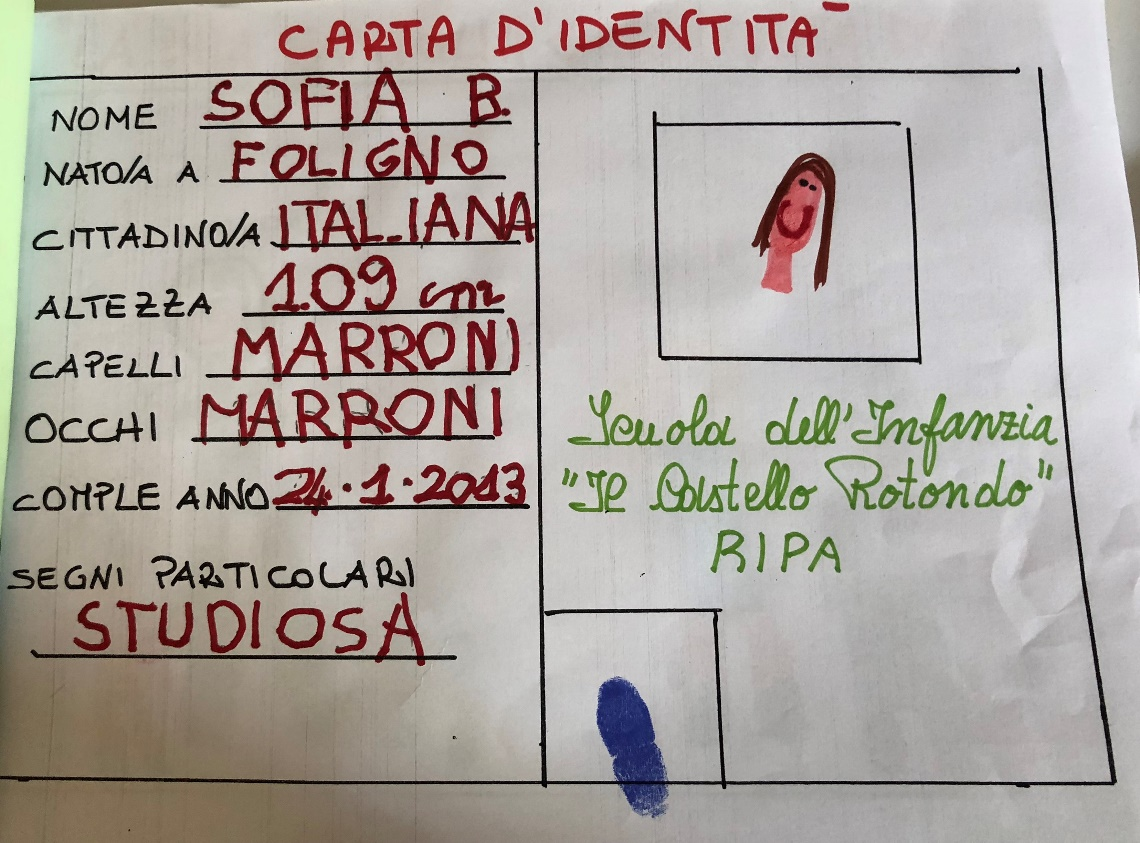 CARTA D'IDENTITÀ
NOME SOFIA B.
NATO/A A FOLIGNO
CITTADINO/A ITALIANA
ALTEZZA 1.09 cm
CAPELLI MARRONI
OCCHI MARRONI
COMPLE ANNO 24.1.2013
SEGNI PARTICOLARI
STUDIOSA
Scuola dell'Infanzia
"Il Castello Rotondo"
RIPA